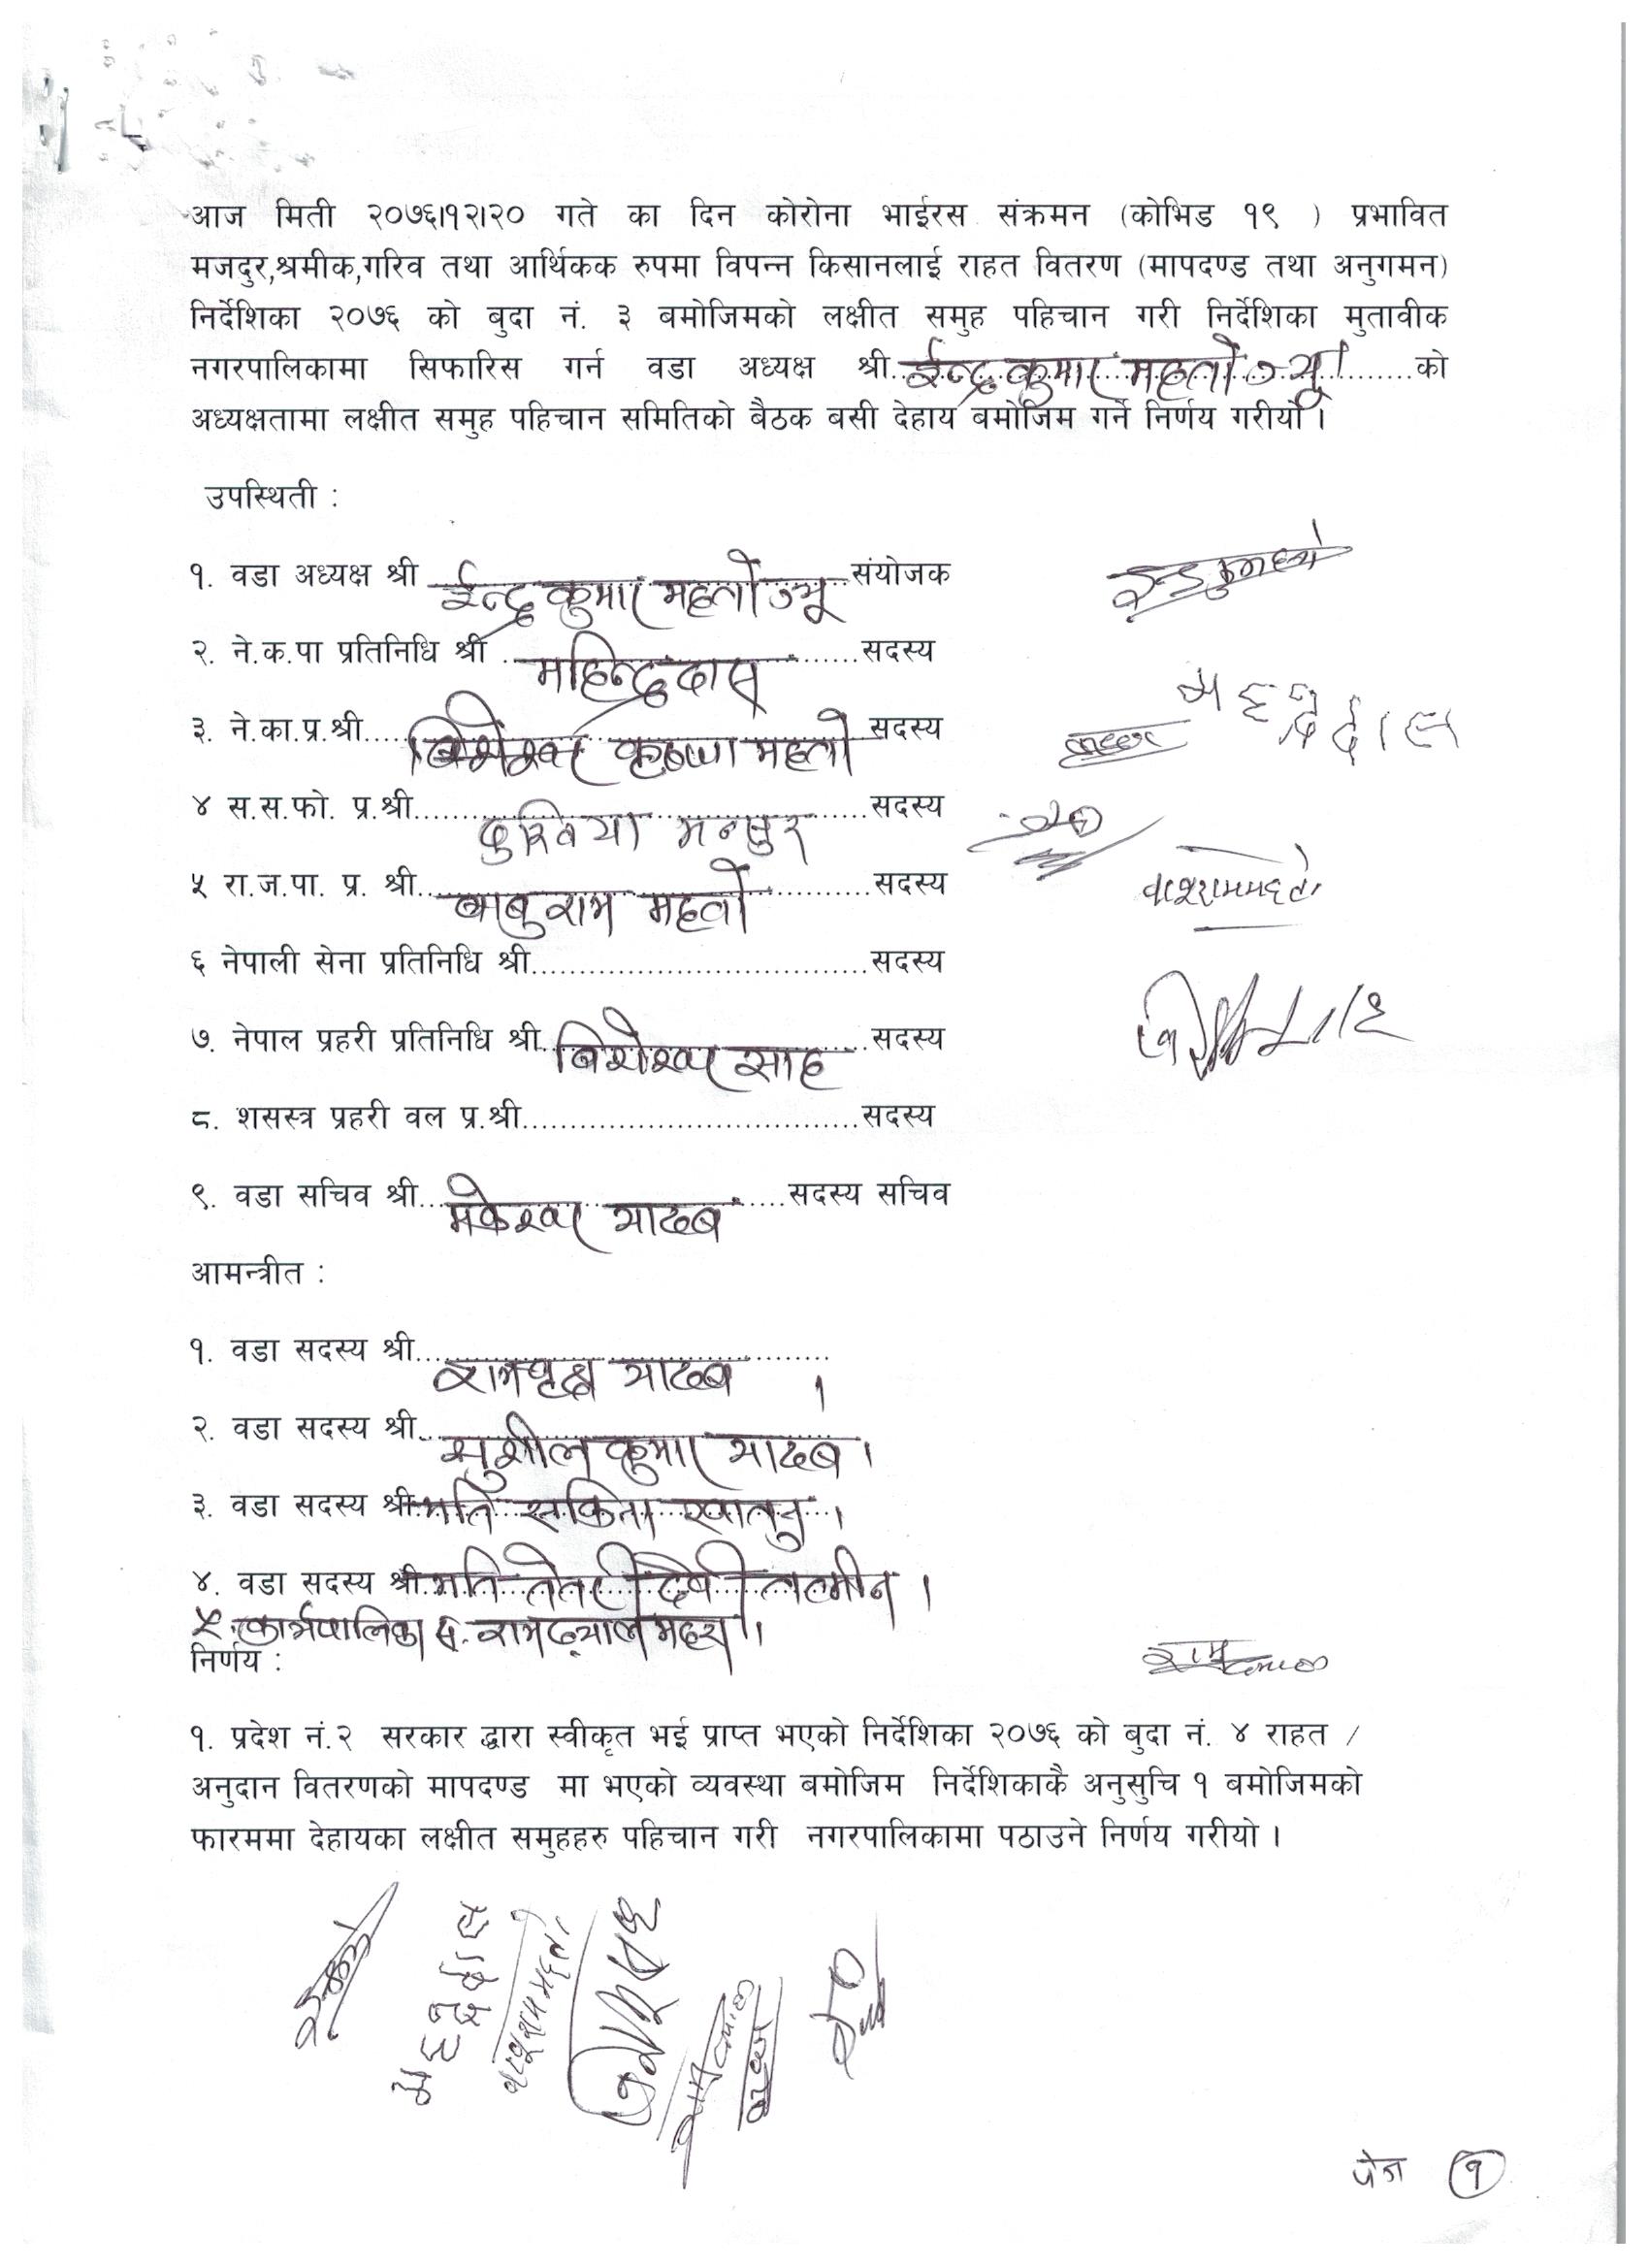 आज मिती २०७६।१२।२० गते का दिन कोरोना भाईरस संक्रमन (कोभिड १९ ) प्रभावित
मजदुर,श्रमीक,गरिव तथा आर्थिकक रुपमा विपन्न किसानलाई राहत वितरण (मापदण्ड तथा अनुगमन)
निर्देशिका २०७६ को बुदा नं. ३ बमोजिमको लक्षीत समुह पहिचान गरी निर्देशिका मुतावीक
नगरपालिकामा सिफारिस गर्न वडा अध्यक्ष श्री ईन्द्र कुमार महतो ज्यू को
अध्यक्षतामा लक्षीत समुह पहिचान समितिको बैठक बसी देहाय बमोजिम गर्ने निर्णय गरीयो ।
उपस्थिती :
१. वडा अध्यक्ष श्री ईन्द्र कुमार महतो ज्यू संयोजक
२. ने.क.पा प्रतिनिधि श्री महिन्द्र दास सदस्य
३. ने.का.प्र.श्री कृष्ण महतो सदस्य
४ स.स.फो. प्र.श्री दुखिया मन्सुर सदस्य
५ रा.ज.पा. प्र. श्री बाबुराम महतो सदस्य
६ नेपाली सेना प्रतिनिधि श्री.................................सदस्य
७. नेपाल प्रहरी प्रतिनिधि श्री बिशेश्वर साह सदस्य
८. शसस्त्र प्रहरी वल प्र.श्री.................................सदस्य
९. वडा सचिव श्री मकेश्वर यादब सदस्य सचिव
आमन्त्रीत :
१. वडा सदस्य श्री रामबृक्ष यादब ।
२. वडा सदस्य श्री सुशील कुमार यादब ।
३. वडा सदस्य श्रीमति खातुन ।
४. वडा सदस्य श्रीमति तेतरी देबी तत्मीन ।
५. कार्यपालिका स. रामदयाल महरा ।
राम
निर्णय :
१. प्रदेश नं.२ सरकार द्धारा स्वीकृत भई प्राप्त भएको निर्देशिका २०७६ को बुदा नं. ४ राहत /
अनुदान वितरणको मापदण्ड मा भएको व्यवस्था बमोजिम निर्देशिकाकै अनुसुचि १ बमोजिमको
फारममा देहायका लक्षीत समुहहरु पहिचान गरी नगरपालिकामा पठाउने निर्णय गरीयो ।
पेज १